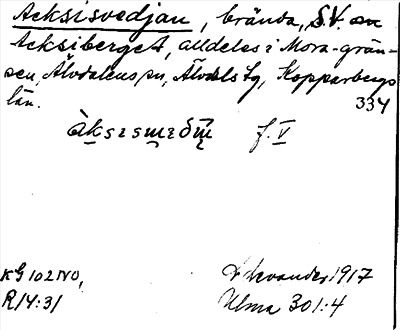 Acksisvedjan, brända, S.V. om
Acksiberget, alldeles i Mora-grän-
sen, Älvdalens sn, Älvdals tg, Kopparbergs
län. 334
f. V
KG 102 NO,
R/4:31
1917
Ulma 301:4